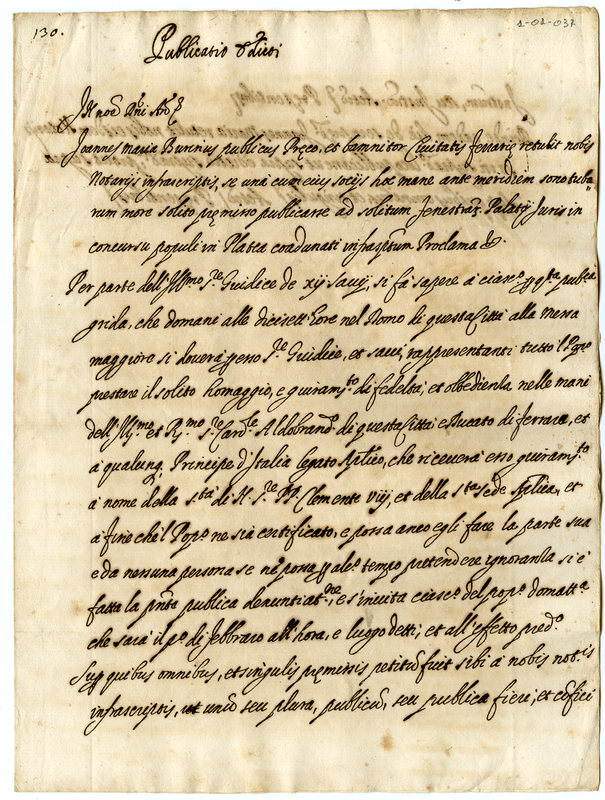 130.
1-01-037
Publicatio
In noē Dn̄i
Joannes Maria publicus Pręco, et bannitor Civitatis ferrarię retulit nobis
Notarijs infrascriptis, se unà cum eius socijs hoc mane ante meridiem sono tuba
rum more solito pręmisso publicasse ad solitum fenestrar̄ Palatij Juris in
concursu populi in Platea coadunati infraſptum Proclama
Per parte dell'Ill.mo S.re Giudice de xij Savij, si fà sapere à ciasc.o q.ta pub.ca
grida, che domani alle dicisett'hore nel Domo di questa Città alla messa
maggiore si doverà esso S.re Giudice, et savij rappresentanti tutto'l
prestare il solito homaggio, e giuram.to di fedeltà, et obbedienza nelle mani
dell'Ill.mo et R.mo S.re Card.le Aldobrand.o di questa Città e Ducato di ferrara, et
à qualunq. Principe d'Italia legato Aplico, che riceverà esso giuram.to
à nome della S.tà di N. S.re PP. Clemente viij, et della S.ta Sede Aplica, et
à fine che'l Pop.o ne sia certificato, e possa anco egli fare la parte sua
e da nessuna persona se nē possa alc.o tempo pretendere ignoranza si è
fatta la pn̄te publica denuntiat.ne, e s'invita ciasc.o del pop.o domatt.a
che sarà il p.o di febbraro all'hora, e luogo detti, et all'effetto pred.o
Sup quibus omnibus, et singulis pręmissis petitū fuit sibi à nobis not.is
infrascriptis, ut unū seu plura, publicū, seu publica fieri, et cōfici